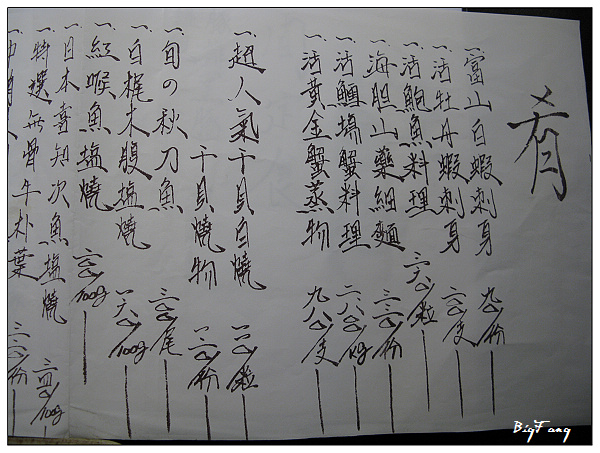 肴
一、富山白蝦刺身 九〇/份
一、活牡丹蝦刺身 三〇〇/支
一、活鮑魚料理 二六〇/粒
一、海胆山藥細麵 三二〇/份
一、活鱈場蟹料理 二八〇〇/KG
一、活黃金蟹蒸物 九八〇/支
一、超人氣干貝白燒 一二〇/粒
干貝燒物 一二〇/份
一、旬の秋刀魚 二三〇/尾
一、白梶木腹塩燒 一六〇/100g
一、紅喉魚塩燒 /100g
一、日本喜知次魚塩燒 二四〇/100g
一、特選無骨牛朴葉 三二〇/份
BigFang